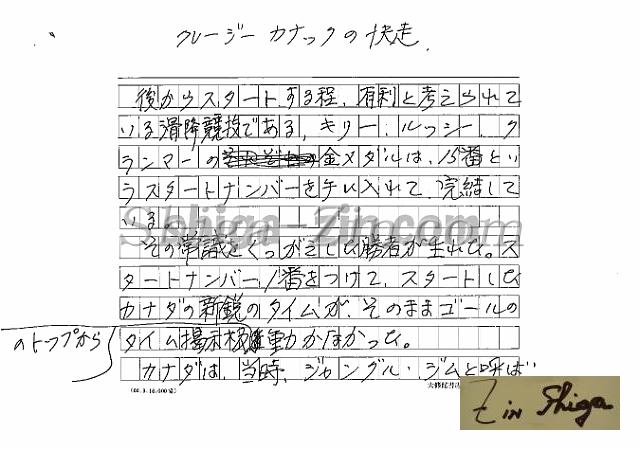 クレージーカナックの快走.
後からスタートする程、有利と考えられて
いる滑降競技である。キリー、ルッシー、ク
ランマーの金メダルは、15番とい
うスタートナンバーを手に入れて、完結して
いる。
その常識をくつがえした勝者が生れた。ス
タートナンバー1番をつけて、スタートした
カナダの新鋭のタイムが、そのままゴールの
タイム掲示板のトップから動かなかった。
カナダは、当時、ジャングル・ジムと呼ばい
Shiga-Zin.com
Z in Shiga